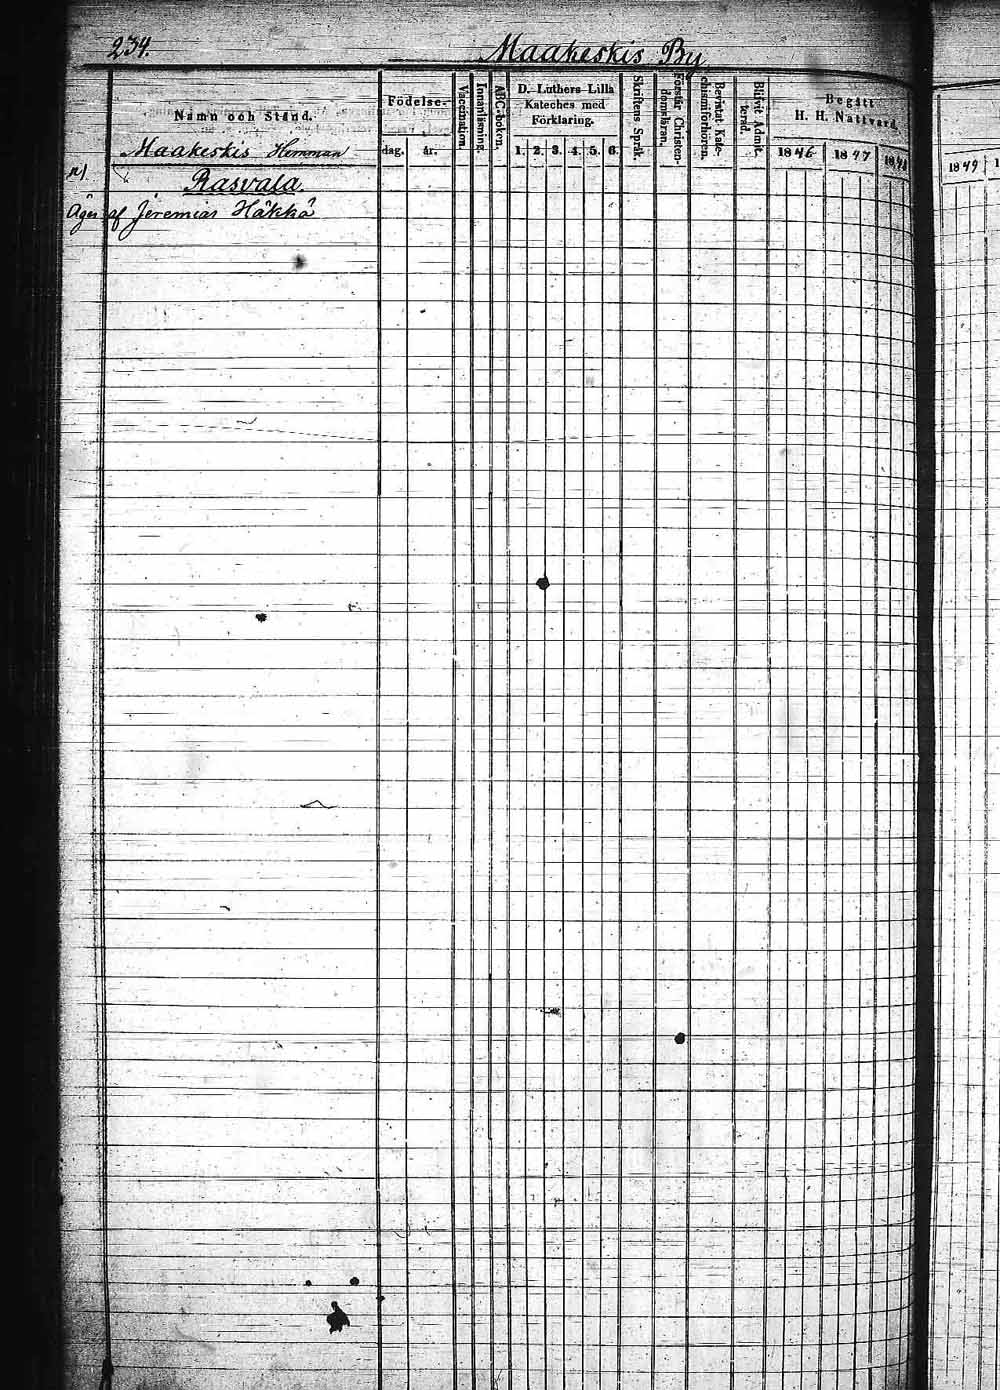 234.
Maakeskis By
Namn och Stånd.
Födelse-
dag. år.
Vaccination.
Innanläsning.
ABC-boken.
D. Luthers Lilla
Kateches med
Förklaring.
1. 2. 3. 4. 5. 6.
Skriftens Språk.
Förstår Christen-
domsläran.
Bevistat Kate-
chismiförhören.
Blifvit Admit-
terad.
Begått
H. H. Nattvard.
1846 1847 1848
1849 1
Maakeskis Hemman
Rasvala.
Äges af Jeremias Häkkä